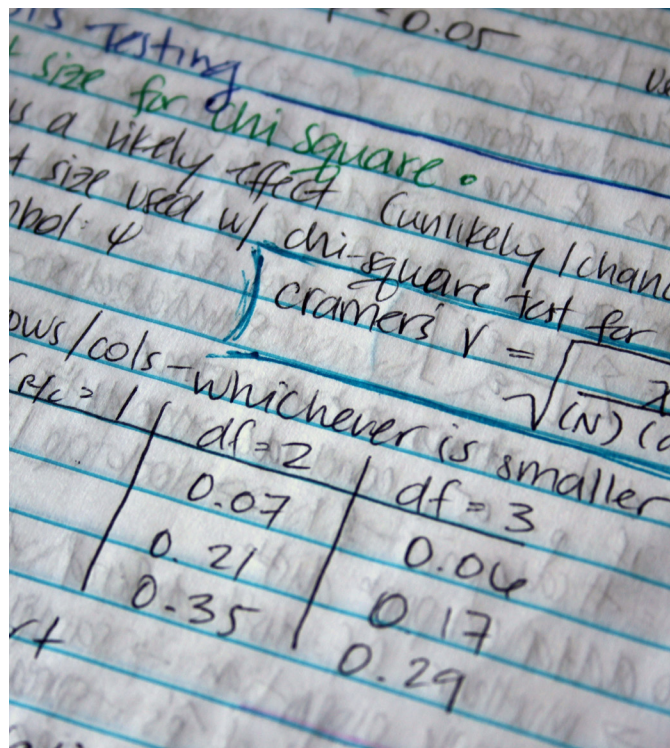 0.05
Testing
size for chi square.
a likely effect (unlikely / chan
size used w/ chi-square test for
bol: φ
cramers' V = √
(N) (d
ows/cols - whichever is smaller
= 1 df = 2 df = 3
0.07 0.06
0.21 0.17
0.35 0.29
rt